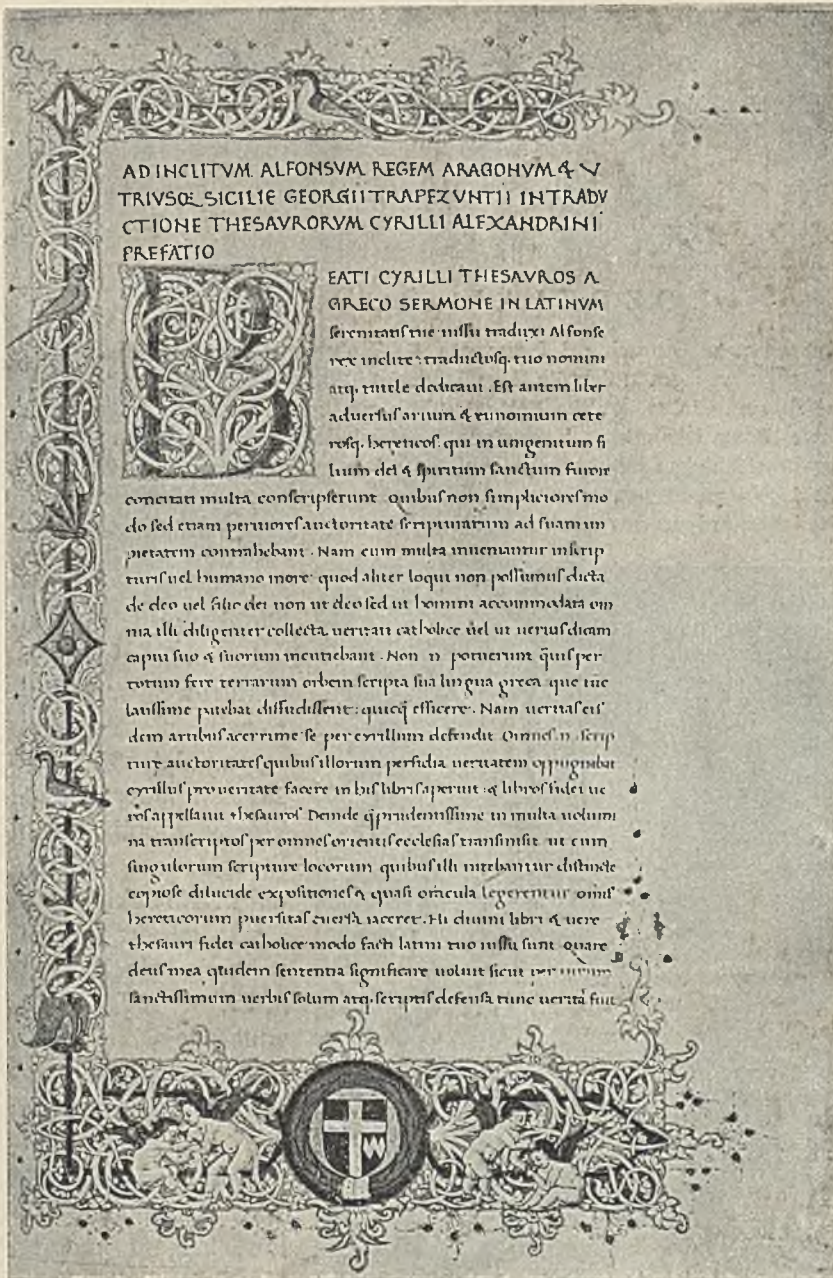 AD INCLITVM ALFONSVM REGEM ARAGONVM & V
TRIVSQ. SICILIE GEORGII TRAPEZVNTII IN TRADV
CTIONE THESAVRORVM CYRILLI ALEXANDRINI
PREFATIO
BEATI CYRILLI THESAVROS A
GRECO SERMONE IN LATINVM
serenitatis tue iussu traduxi Alfonse
rex inclite: traductosq. tuo nomini
atq. tutele dedicaui. Est autem liber
aduersus arium & eunomium cete
rosq. hereticos. qui in unigenitum fi
lium dei & spiritum sanctum furore
concitati multa conscripserunt quibus non simpliciores mo
do sed etiam peritiores auctoritate scripturarum ad suam im
pietatem contrahebant. Nam cum multa inueniantur in scrip
turis uel humano more quod aliter loqui non possumus dicta
de deo uel filio dei non ut deo sed ut homini accommodata om
nia illi diligenter collecta ueritati catholice uel ut uerius dicam
capiti suo & suorum incutiebant. Non n. potuerunt q̄uis per
totum fere terrarum orbem scripta sua lingua greca que tūc
latissime patebat diffudissent: quicq̄ efficere. Nam ueritas eis
dem artibus acerrime se per cyrillum defendit. Omnes .n. scrip
ture auctoritates quibus illorum perfidia ueritatem oppugnabat
cyrillus pro ueritate facere in his libris aperuit: & libros fidei ue
ros appellauit thesauros. Deinde q̄ prudentissime in multa uolumi
na transcriptos per omnes orientis ecclesias transmisit ut cum
singulorum scripture locorum quibus illi nitebantur distincte
copiose dilucide expositiones & quasi oracula legerentur omis
hereticorum puersitas euersa iaceret. Hi diuini libri & uere
thesauri fidei catholice modo facti latini tuo iussu sunt quare
deus mea quidem sententia significare uoluit sicut per uirum
sanctissimum uerbis solum atq. scriptis defensa tunc ueritas fuit